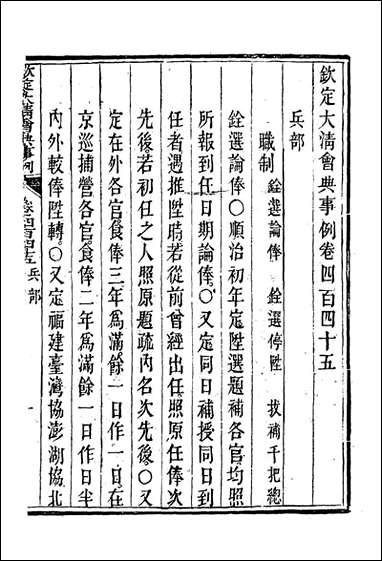 欽定大清會典事例卷四百四十五
兵部
職制 銓選論俸 銓選停陞 拔補千把總
銓選論俸○順治初年定陞選題補各官均照
所報到任日期論俸○又定同日補授同日到
任者遇推陞時若從前曾經出任照原任俸次
先後若初任之人照原題疏內名次先後○又
定在外各官食俸三年為滿餘一日作一日在
京巡捕營各官食俸二年為滿餘一日作日半
內外較俸陞轉○又定福建臺灣協澎湖協北
欽定大清會典事例 卷四百四十五 兵部